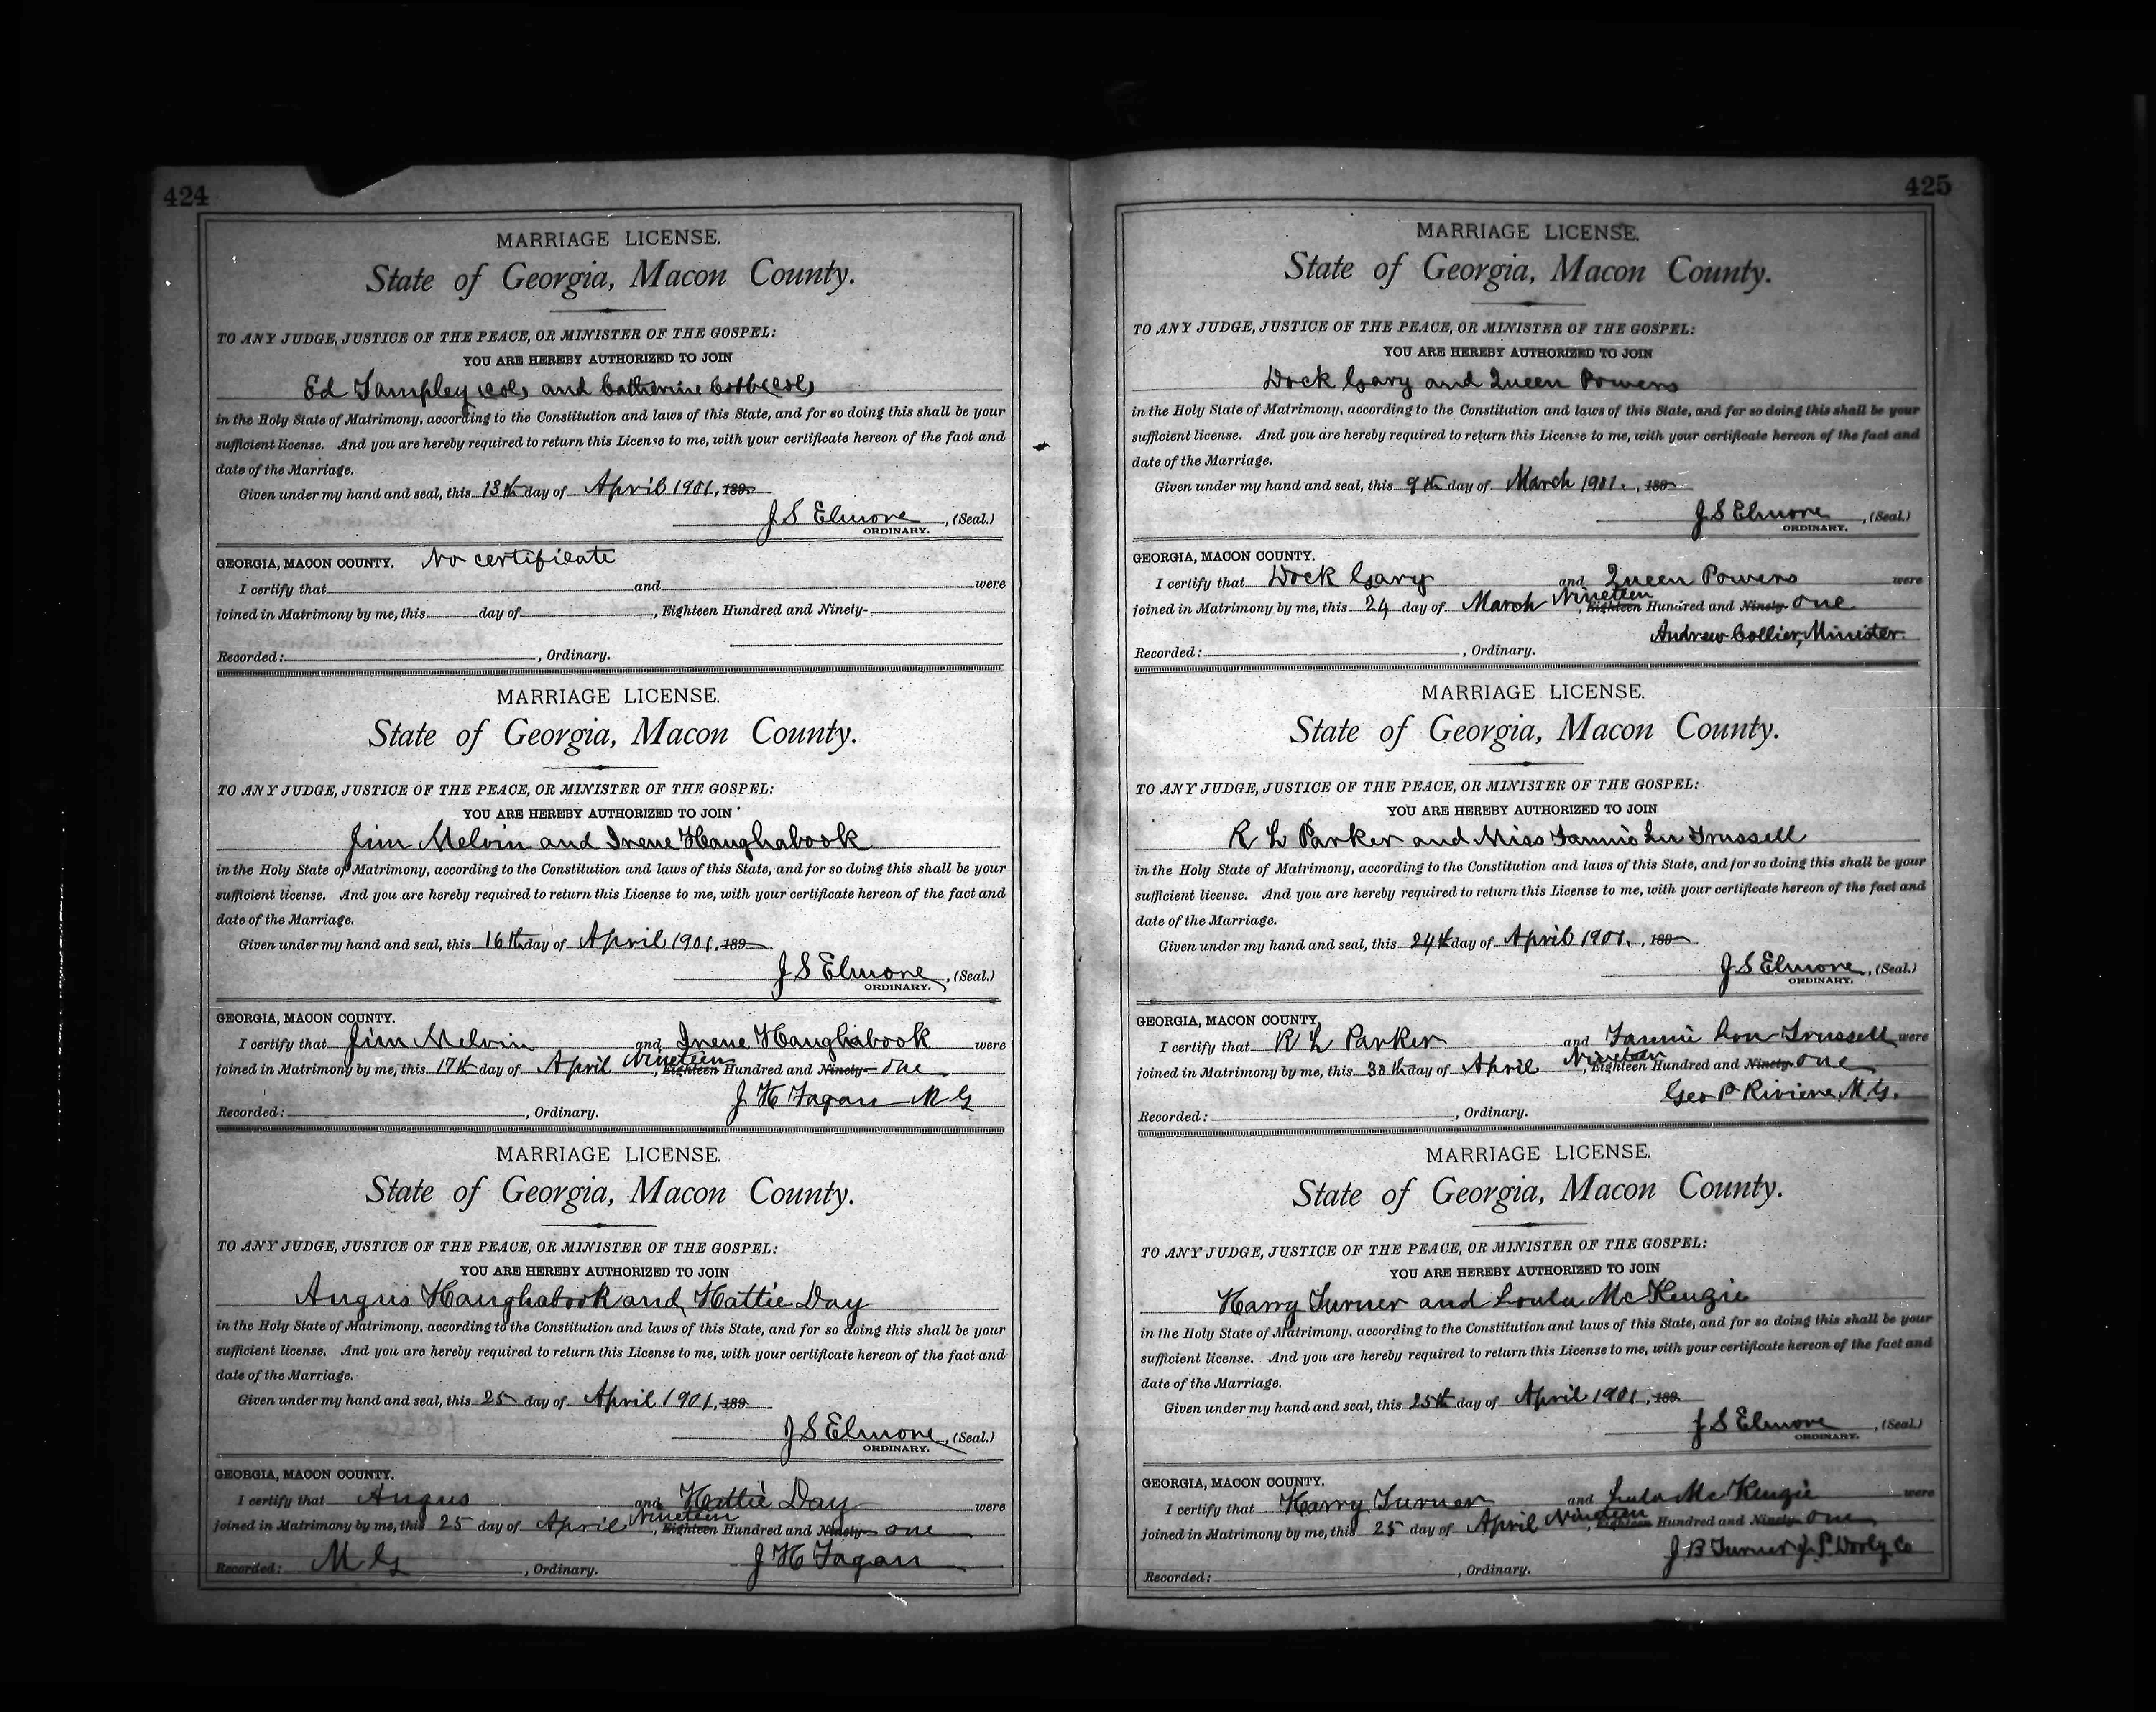 424
MARRIAGE LICENSE.
State of Georgia, Macon County.
TO ANY JUDGE, JUSTICE OF THE PEACE, OR MINISTER OF THE GOSPEL:
YOU ARE HEREBY AUTHORIZED TO JOIN
Ed Tampley (col) and Catherine Cobb (col)
in the Holy State of Matrimony, according to the Constitution and laws of this State, and for so doing this shall be your
sufficient license. And you are hereby required to return this License to me, with your certificate hereon of the fact and
date of the Marriage.
Given under my hand and seal, this 13th day of April 1901, 189
J S Elmore, (Seal.)
ORDINARY.
GEORGIA, MACON COUNTY. No certificate
I certify that and were
joined in Matrimony by me, this day of , Eighteen Hundred and Ninety-
Recorded: , Ordinary.
MARRIAGE LICENSE.
State of Georgia, Macon County.
TO ANY JUDGE, JUSTICE OF THE PEACE, OR MINISTER OF THE GOSPEL:
YOU ARE HEREBY AUTHORIZED TO JOIN
Jim Melvin and Irene Haughabook
in the Holy State of Matrimony, according to the Constitution and laws of this State, and for so doing this shall be your
sufficient license. And you are hereby required to return this License to me, with your certificate hereon of the fact and
date of the Marriage.
Given under my hand and seal, this 16th day of April 1901, 189
J S Elmore, (Seal.)
ORDINARY.
GEORGIA, MACON COUNTY.
I certify that Jim Melvin and Irene Haughabook were
joined in Matrimony by me, this 17th day of April Nineteen, Eighteen Hundred and Ninety- one
J H Fagan M G
Recorded: , Ordinary.
MARRIAGE LICENSE.
State of Georgia, Macon County.
TO ANY JUDGE, JUSTICE OF THE PEACE, OR MINISTER OF THE GOSPEL:
YOU ARE HEREBY AUTHORIZED TO JOIN
Angus Haughabook and Hattie Day
in the Holy State of Matrimony, according to the Constitution and laws of this State, and for so doing this shall be your
sufficient license. And you are hereby required to return this License to me, with your certificate hereon of the fact and
date of the Marriage.
Given under my hand and seal, this 25 day of April 1901, 189
J S Elmore, (Seal.)
ORDINARY.
GEORGIA, MACON COUNTY.
I certify that Angus and Hattie Day were
joined in Matrimony by me, this 25 day of April Nineteen, Eighteen Hundred and Ninety- one
Recorded: M G , Ordinary. J H Fagan
425
MARRIAGE LICENSE.
State of Georgia, Macon County.
TO ANY JUDGE, JUSTICE OF THE PEACE, OR MINISTER OF THE GOSPEL:
YOU ARE HEREBY AUTHORIZED TO JOIN
Dock Gary and Queen Powers
in the Holy State of Matrimony, according to the Constitution and laws of this State, and for so doing this shall be your
sufficient license. And you are hereby required to return this License to me, with your certificate hereon of the fact and
date of the Marriage.
Given under my hand and seal, this 9th day of March 1901., 189
J S Elmore, (Seal.)
ORDINARY.
GEORGIA, MACON COUNTY.
I certify that Dock Gary and Queen Powers were
joined in Matrimony by me, this 24 day of March Nineteen, Eighteen Hundred and Ninety- one
Andrew Collier, Minister
Recorded: , Ordinary.
MARRIAGE LICENSE.
State of Georgia, Macon County.
TO ANY JUDGE, JUSTICE OF THE PEACE, OR MINISTER OF THE GOSPEL:
YOU ARE HEREBY AUTHORIZED TO JOIN
R L Parker and Miss Fannie Lu Trussell
in the Holy State of Matrimony, according to the Constitution and laws of this State, and for so doing this shall be your
sufficient license. And you are hereby required to return this License to me, with your certificate hereon of the fact and
date of the Marriage.
Given under my hand and seal, this 24th day of April 1901., 189
J S Elmore, (Seal.)
ORDINARY.
GEORGIA, MACON COUNTY.
I certify that R L Parker and Fannie Lou Trussell were
joined in Matrimony by me, this 30th day of April Nineteen, Eighteen Hundred and Ninety- one
Geo P Riviere, M.G.
Recorded: , Ordinary.
MARRIAGE LICENSE.
State of Georgia, Macon County.
TO ANY JUDGE, JUSTICE OF THE PEACE, OR MINISTER OF THE GOSPEL:
YOU ARE HEREBY AUTHORIZED TO JOIN
Harry Turner and Loula McKenzie
in the Holy State of Matrimony, according to the Constitution and laws of this State, and for so doing this shall be your
sufficient license. And you are hereby required to return this License to me, with your certificate hereon of the fact and
date of the Marriage.
Given under my hand and seal, this 25th day of April 1901, 189
J S Elmore, (Seal.)
ORDINARY.
GEORGIA, MACON COUNTY.
I certify that Harry Turner and Lula McKenzie were
joined in Matrimony by me, this 25 day of April Nineteen, Eighteen Hundred and Ninety- one
J B Turner J.P. Dooly Co
Recorded: , Ordinary.